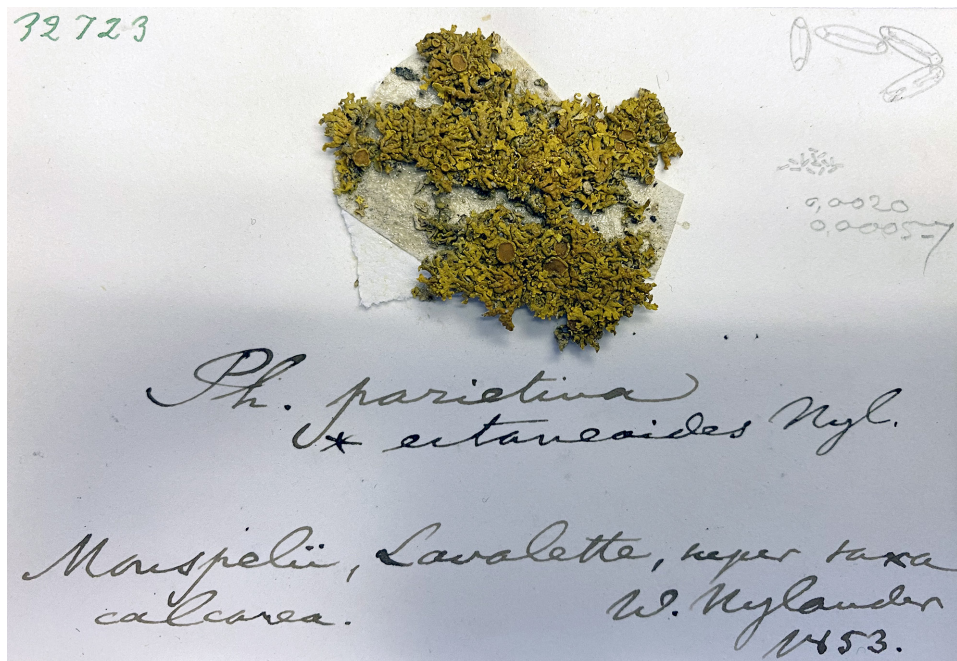 32723
0,0020
0,00057
Ph. parietina
* ectaneoides Nyl.
Monspelii, Lavalette, super saxa
calcarea. W. Nylander
1853.